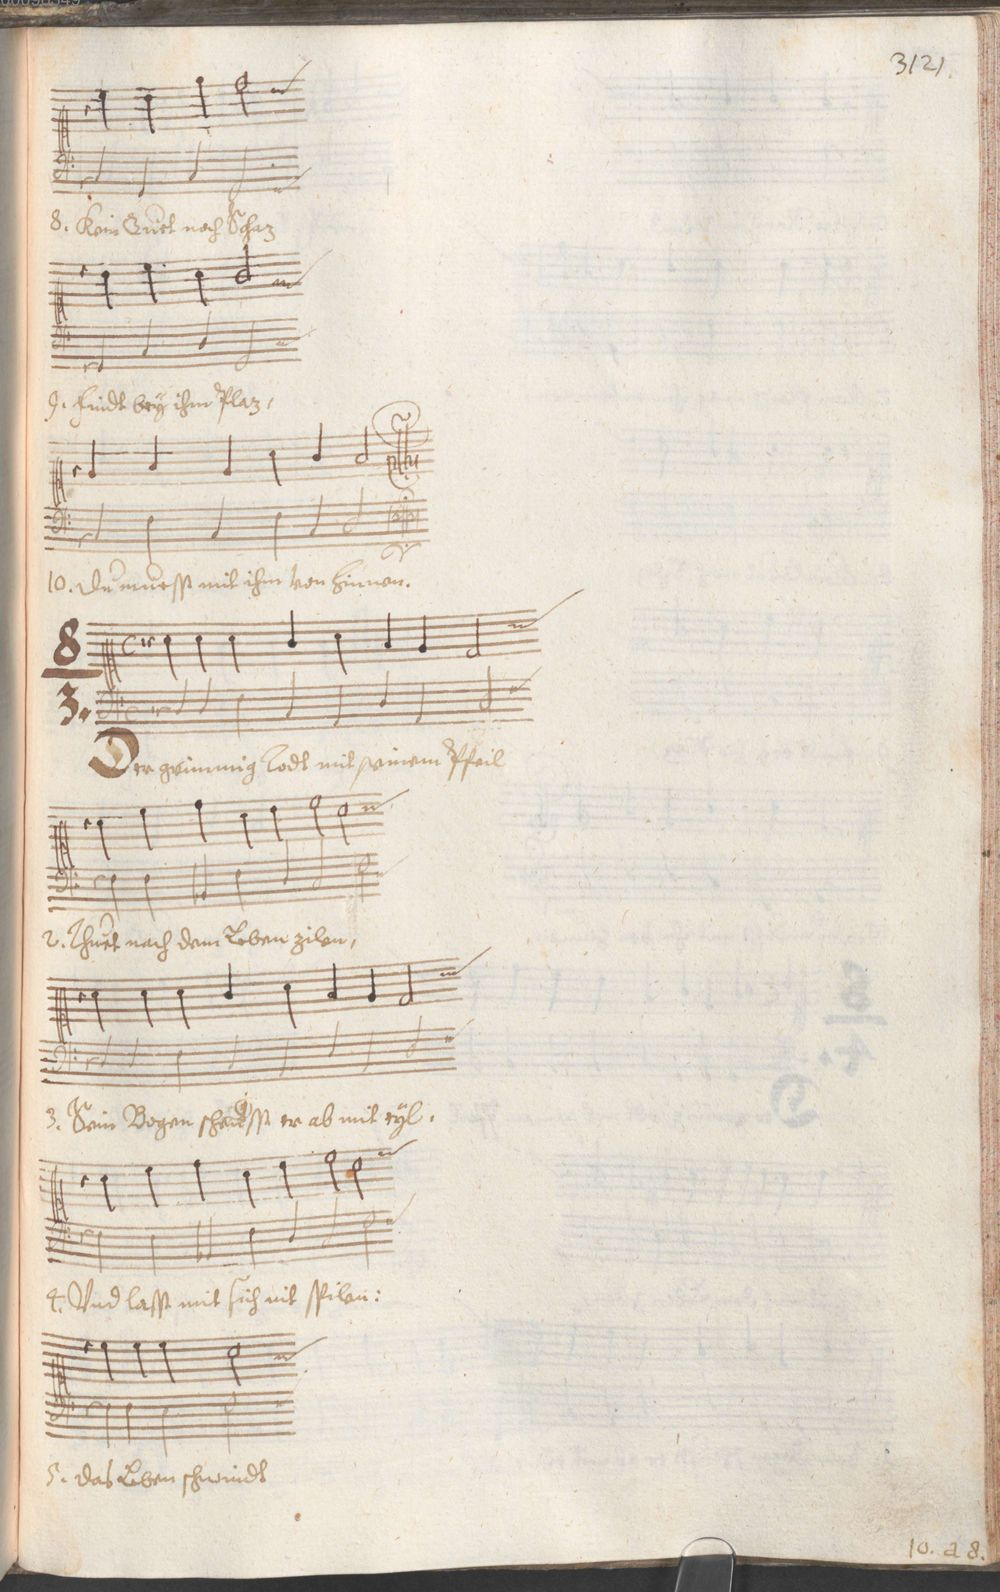 3121.
8. Kein Guet noch Schaz
9. Findt bey ihm Plaz,
10. Du muesst mit ihm von hinnen.
8
3.
Der grimmig Todt mit seinem Pfeil
2. Thuet nach dem Leben zilen,
3. Sein Bogen scheusst er ab mit eyl.
4. Vnd lasst mit sich nit spilen:
5. das Leben schwindt
10. a 8.